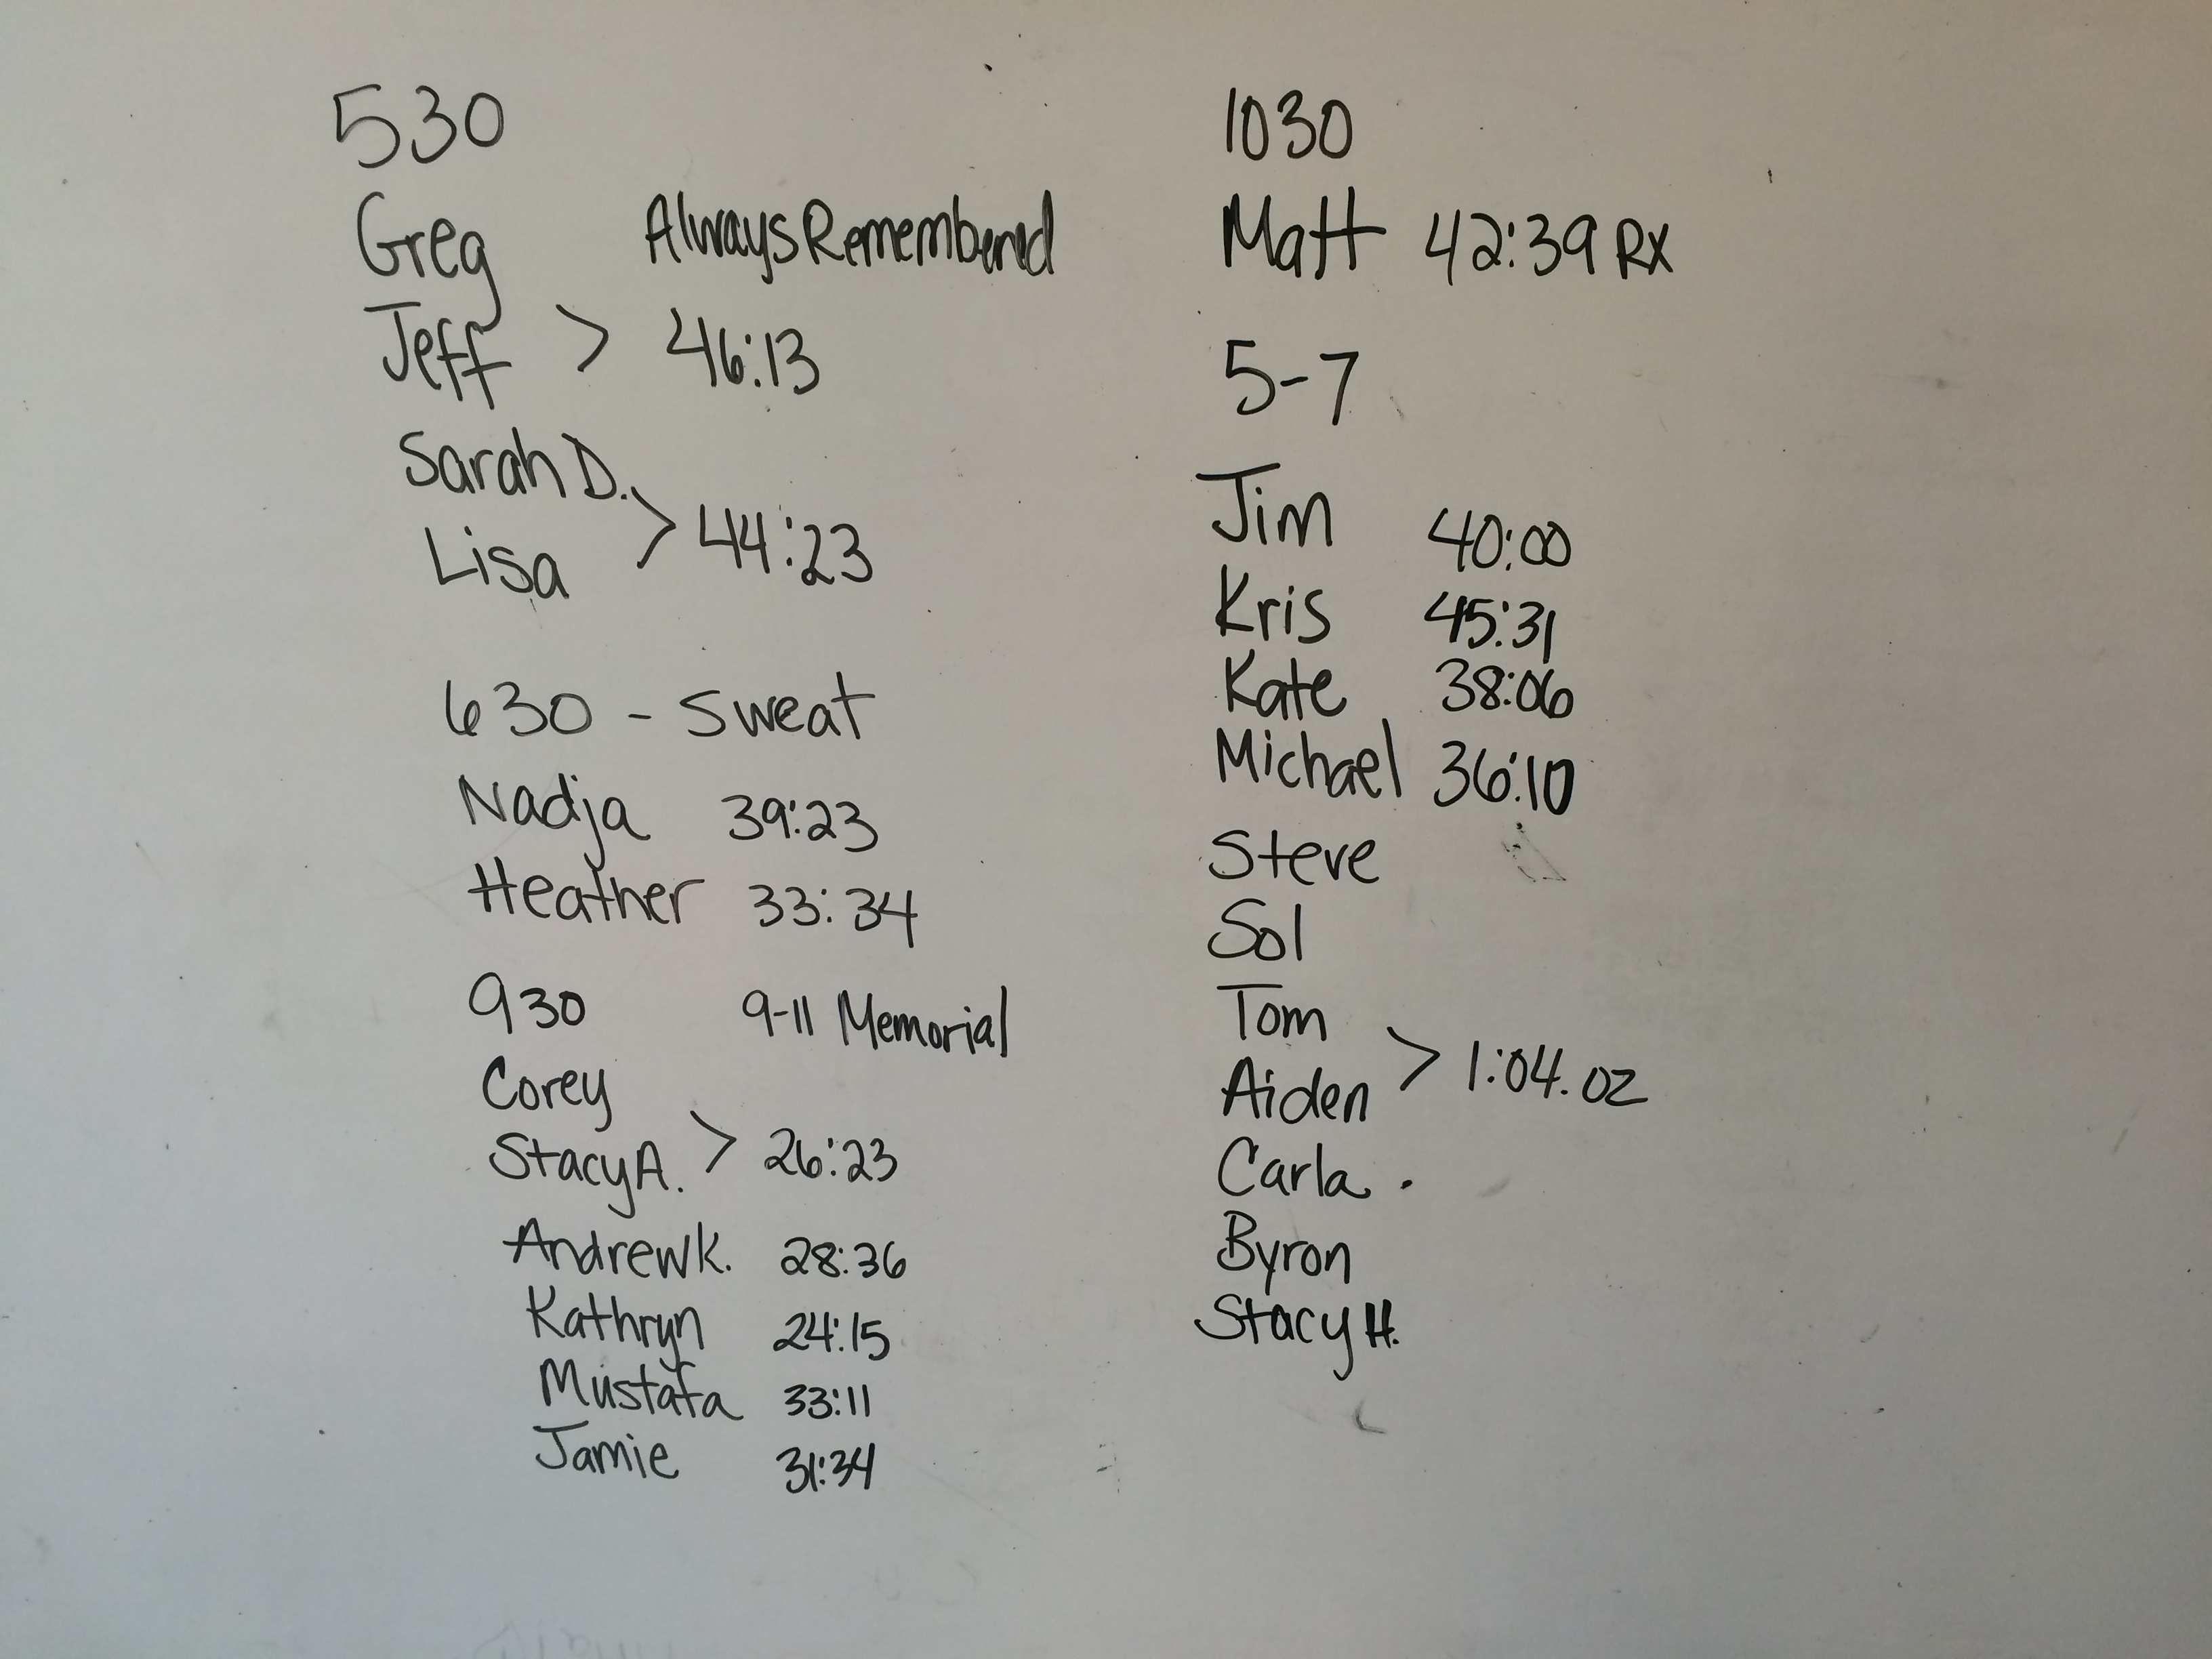 530
Greg Always Remembered
Jeff > 46:13
Sarah D.
Lisa > 44:23
630 - Sweat
Nadja 39:23
Heather 33:34
930 9-11 Memorial
Corey
Stacy A. > 26:23
Andrew K. 28:36
Kathryn 24:15
Mustafa 33:11
Jamie 31:34
1030
Matt 42:39 RX
5-7
Jim 40:00
Kris 45:31
Kate 38:06
Michael 36:10
Steve
Sol
Tom
Aiden > 1:04.02
Carla .
Byron
Stacy H.